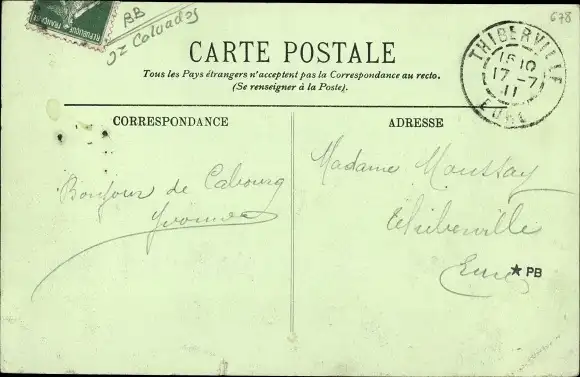 RÉPUBLIQUE FRANÇAISE
BB
Calvados
678
CARTE POSTALE
Tous les Pays étrangers n'acceptent pas la Correspondance au recto.
(Se renseigner à la Poste).
THIBERVILLE
17 -7
11
EURE
CORRESPONDANCE
ADRESSE
Bonjour de Cabourg
Yvonne
Madame Moussay
Thiberville
Eure
★ PB